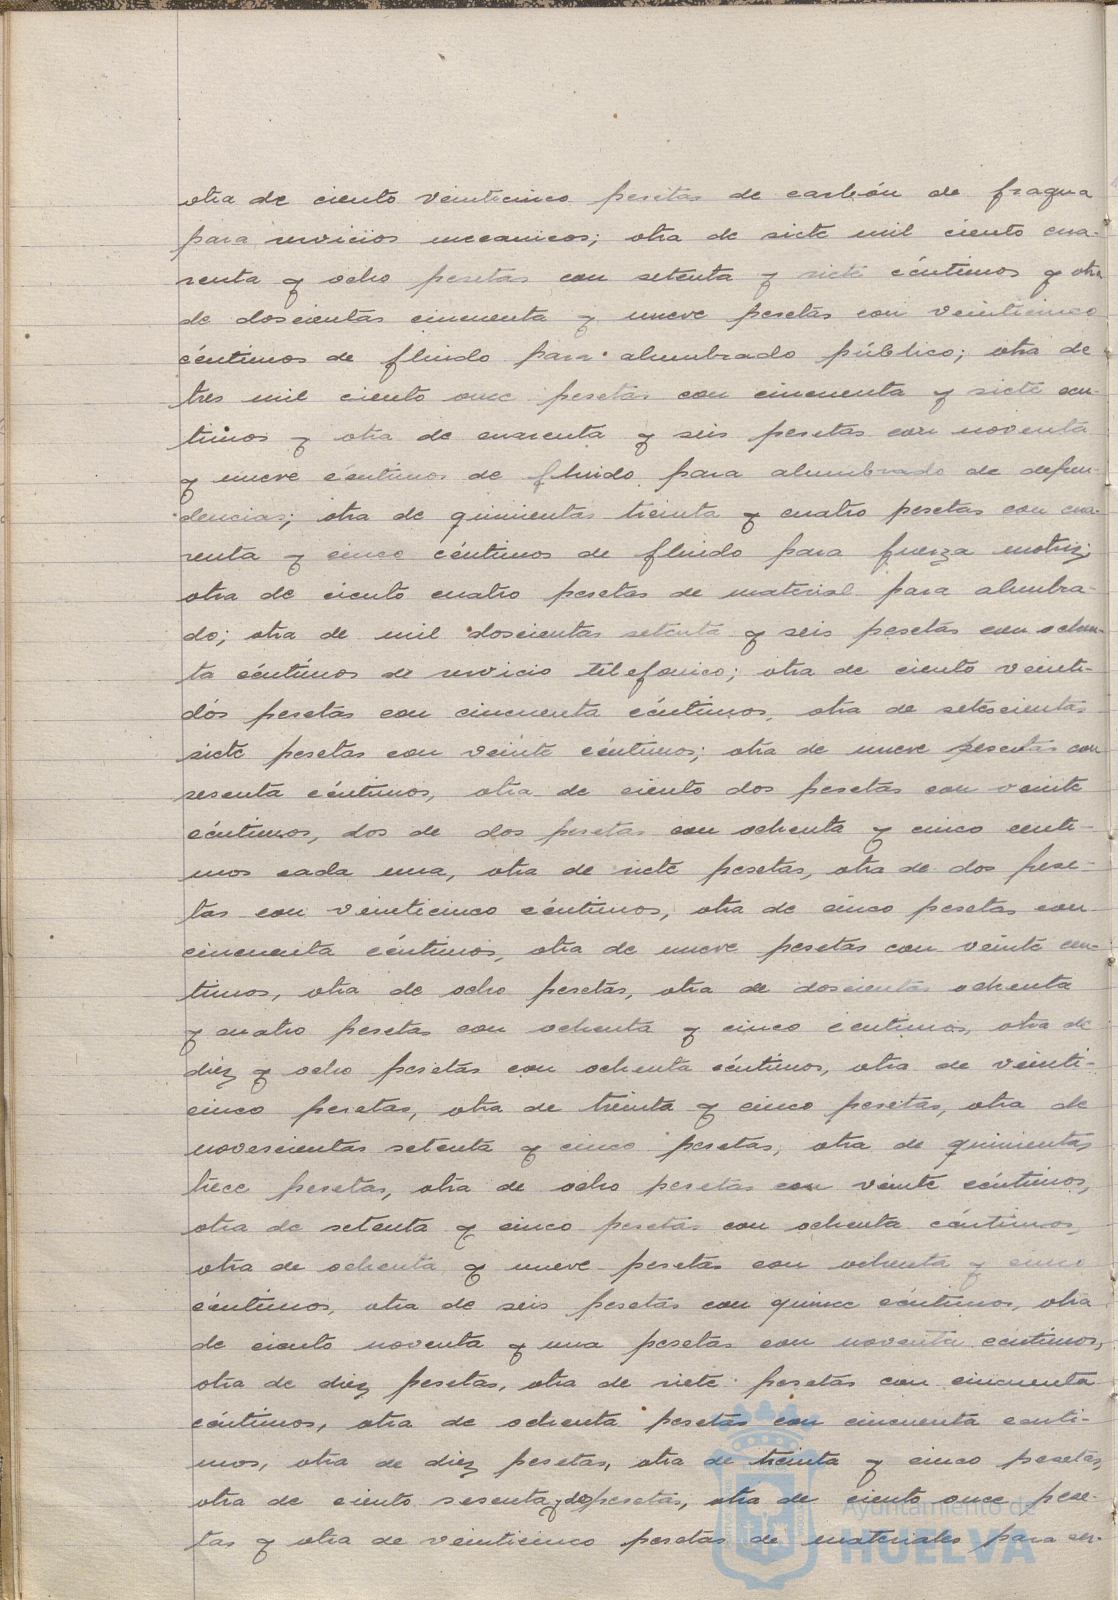 otra de ciento veinticinco pesetas de carbón de fragua
para servicios mecanicos; otra de siete mil ciento cua-
renta y ocho pesetas con setenta y siete céntimos y otra
de doscientas cincuenta y nueve pesetas con veinticinco
céntimos de fluido para alumbrado público; otra de
tres mil ciento once pesetas con cincuenta y siete cén-
timos y otra de cuarenta y seis pesetas con noventa
y nueve céntimos de fluido para alumbrado de depen-
dencias; otra de quinientas treinta y cuatro pesetas con cua-
renta y cinco céntimos de fluido para fuerza motriz;
otra de ciento cuatro pesetas de material para alumbra-
do; otra de mil doscientas setenta y seis pesetas con ochen-
ta céntimos de servicio telefonico; otra de ciento veinti-
dós pesetas con cincuenta céntimos, otra de setescientas
siete pesetas con veinte céntimos; otra de nueve pesetas con
sesenta céntimos, otra de ciento dos pesetas con veinte
céntimos, dos de dos pesetas con ochenta y cinco centi-
mos cada una, otra de siete pesetas, otra de dos pese-
tas con veinticinco céntimos, otra de cinco pesetas con
cincuenta céntimos, otra de nueve pesetas con veinte cen-
timos, otra de ocho pesetas, otra de doscientas ochenta
y cuatro pesetas con ochenta y cinco centimos, otra de
diez y ocho pesetas con ochenta céntimos, otra de veinti-
cinco pesetas, otra de treinta y cinco pesetas, otra de
novescientas setenta y cinco pesetas, otra de quinientas
trece pesetas, otra de ocho pesetas con veinte céntimos,
otra de setenta y cinco pesetas con ochenta céntimos,
otra de ochenta y nueve pesetas con ochenta y cinco
céntimos, otra de seis pesetas con quince céntimos, otra
de ciento noventa y una pesetas con noventa céntimos,
otra de diez pesetas, otra de siete pesetas con cincuenta
céntimos, otra de ochenta pesetas con cincuenta centi-
mos, otra de diez pesetas, otra de treinta y cinco pesetas,
otra de ciento sesenta y dos pesetas, otra de ciento once pese-
tas y otra de veinticinco pesetas de materiales para ser-
Ayuntamiento de
HUELVA